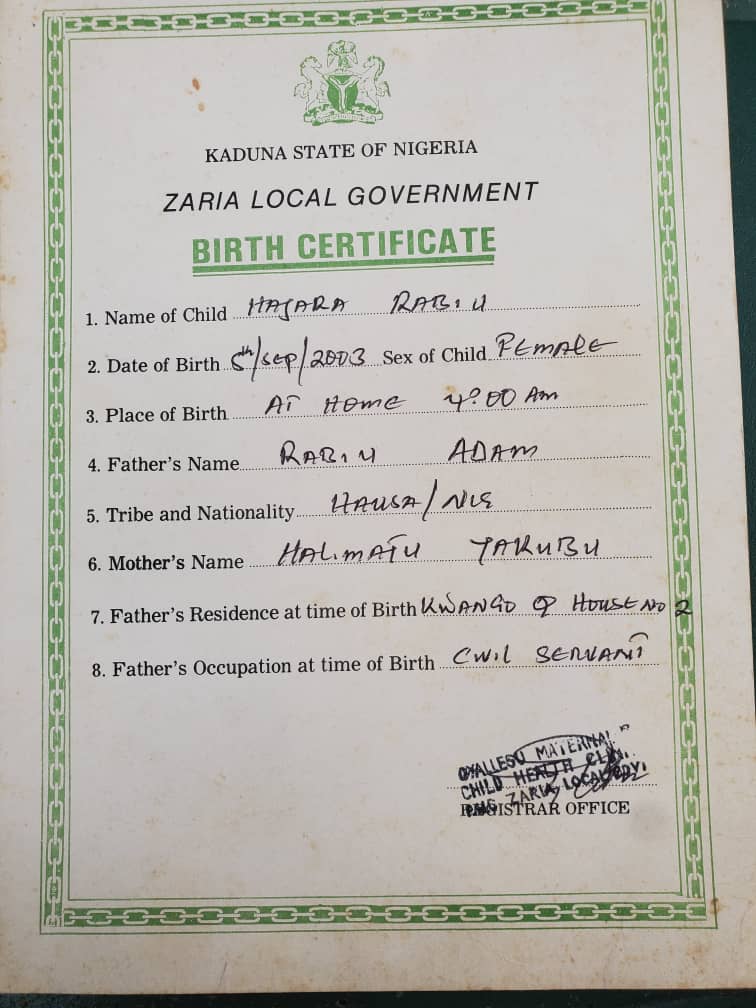 KADUNA STATE OF NIGERIA
ZARIA LOCAL GOVERNMENT
BIRTH CERTIFICATE
1. Name of Child HAJARA RABIU
2. Date of Birth 5th/SEP/2003 Sex of Child FEMALE
3. Place of Birth AT HOME 4:00 AM
4. Father's Name RABIU ADAM
5. Tribe and Nationality HAUSA/NIG
6. Mother's Name HALIMATU YAKUBU
7. Father's Residence at time of Birth HOUSE NO 2
8. Father's Occupation at time of Birth CIVIL SERVANT
MATERNAL
CHILD HEALTH
ZARIA LOCAL
REGISTRAR OFFICE